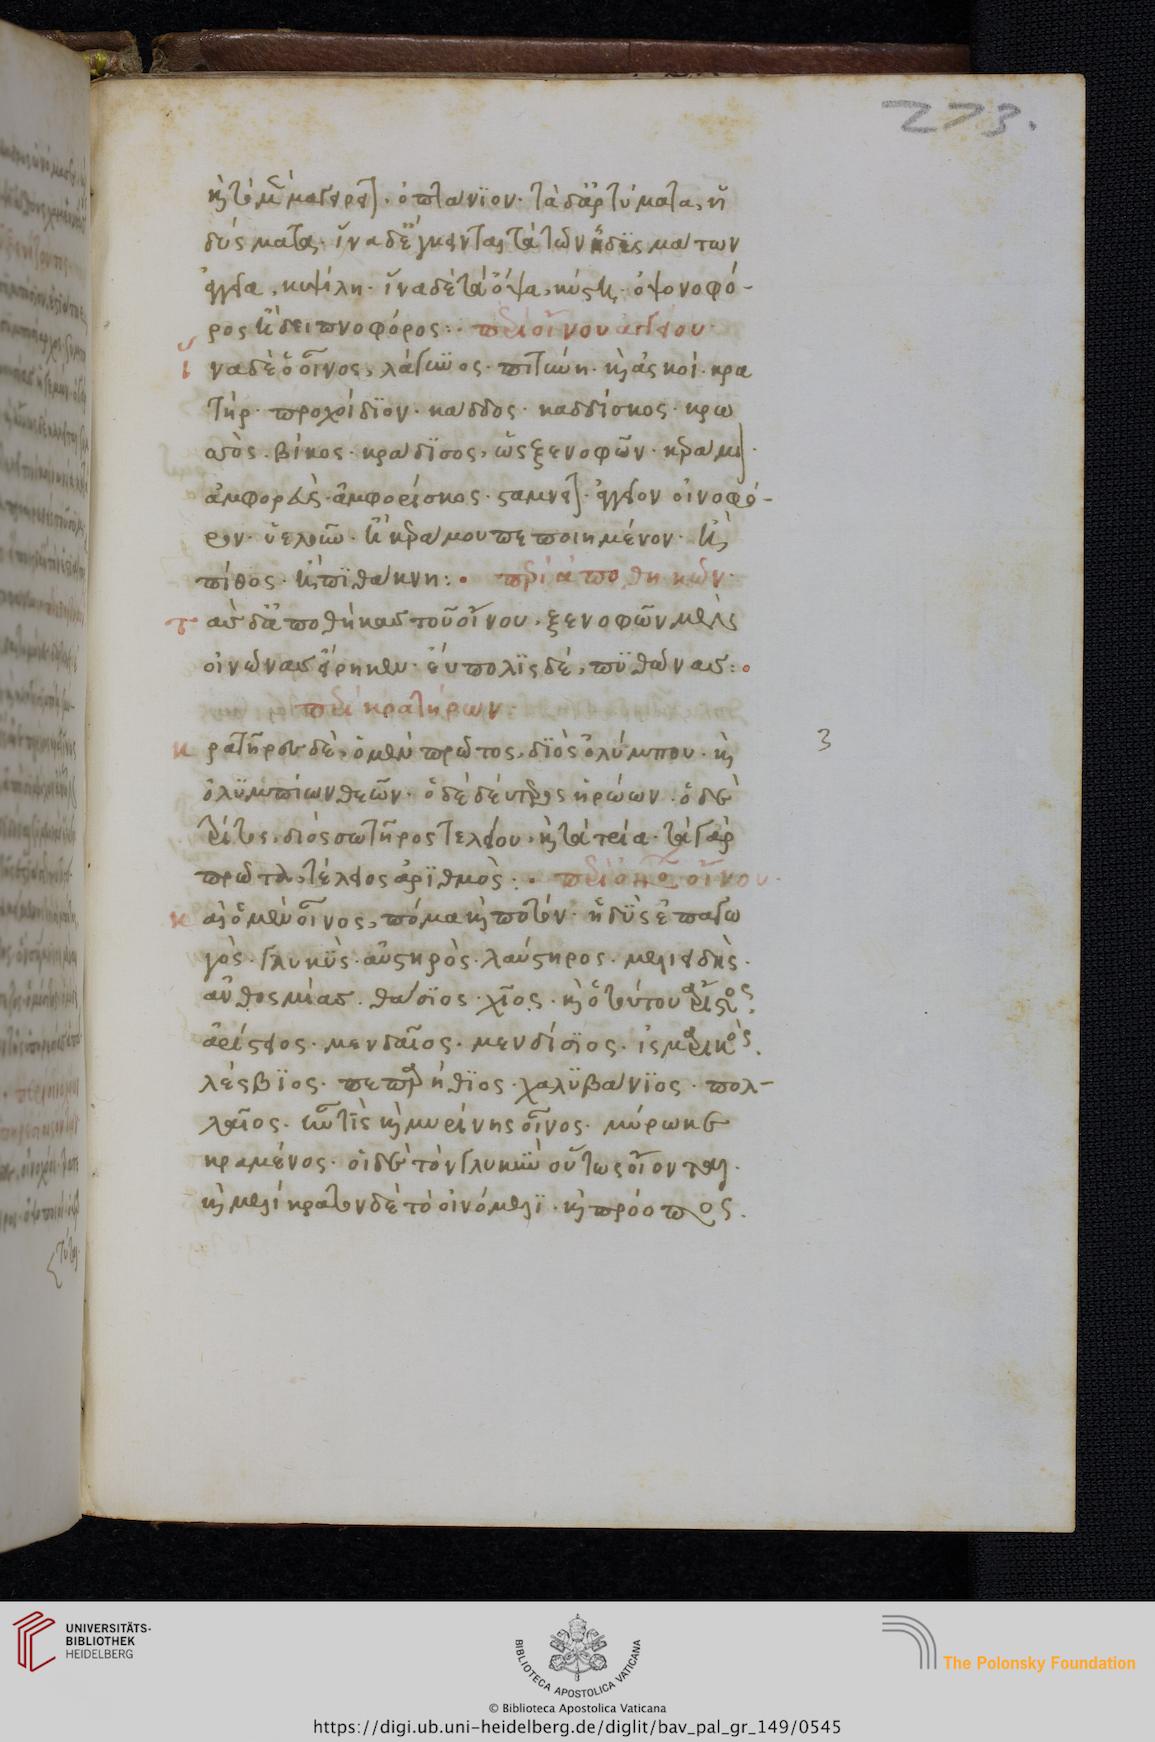 273.
καὶ τὸ μὲν μαγειρεῖον. ὀπτανίον. τὰ δ' ἀρτύματα, ἡ
δύσματα. ἵνα δ' ἔγκειται τὰ τῶν ἡδυσμάτων
ἀγγεῖα, κυψέλη. ἵνα δὲ τὰ ὄψα, κύστις. ὀψονοφό-
ρος καὶ δειπνοφόρος: περὶ οἴνου ἀγγείου.
ἵ να δὲ ὁ οἶνος, λάγυνος. πιτύνη. καὶ ἀσκοί. κρα
τήρ. προχοίδιον. καδδος. καδδίσκος. κρω
σσὸς. βίκος. κράδισος, ὡς ξενοφῶν. κεράμιον.
ἀμφορεὺς. ἀμφορίσκος. σταμνεῖον. ἀγγεῖον οἰνοφό-
ρον. ὑελοῦν. καὶ κεράμου πεποιημένον. καὶ
πίθος. καὶ πιθάκνη: περὶ ἀποθηκῶν.
τ ὰς δ' ἀποθήκας τοῦ οἴνου, ξενοφῶν μὲν
οἰνῶνας εἴρηκεν. εὔπολις δέ, πυθῶνας:
περὶ κρατήρων.
κ ρατῆρες δὲ, ὁ μὲν πρῶτος, διὸς ὀλύμπου. καὶ
ὀλυμπίων θεῶν. ὁ δὲ δεύτερος ἡρώων. ὁ δὲ
τρίτος, διὸς σωτῆρος τελείου, καὶ τὰ τρία. τὰ γὰρ
πρῶτα, τέλειος ἀριθμὸς: περὶ οἴνου.
κ αὶ ὁ μὲν οἶνος, πόμα καὶ ποτόν. ἡδὺς ἐπαγω
γὸς. γλυκὺς. αὐστηρὸς. λαύστηρος. μελιειδὴς.
ἀνθοσμίας. θάσιος. χῖος. καὶ ὁ τούτου ἄριστος.
ἀρίσειος. μενδαῖος. μενδίσιος. ἰσμαρικὸς.
λέσβιος. πεπαρήθιος. χαλυβάνιος. πολ-
λαῖος. καὶ μυρίνης οἶνος. μύρω κε
κραμένος. οἱ δὲ τὸν γλυκὺν οὕτως οἴονται.
καὶ μελίκρατον δὲ τὸ οἰνόμελι. καὶ πρόοπος.
3
UNIVERSITÄTS-
BIBLIOTHEK
HEIDELBERG
BIBLIOTECA APOSTOLICA VATICANA
The Polonsky Foundation
© Biblioteca Apostolica Vaticana
https://digi.ub.uni-heidelberg.de/diglit/bav_pal_gr_149/0545